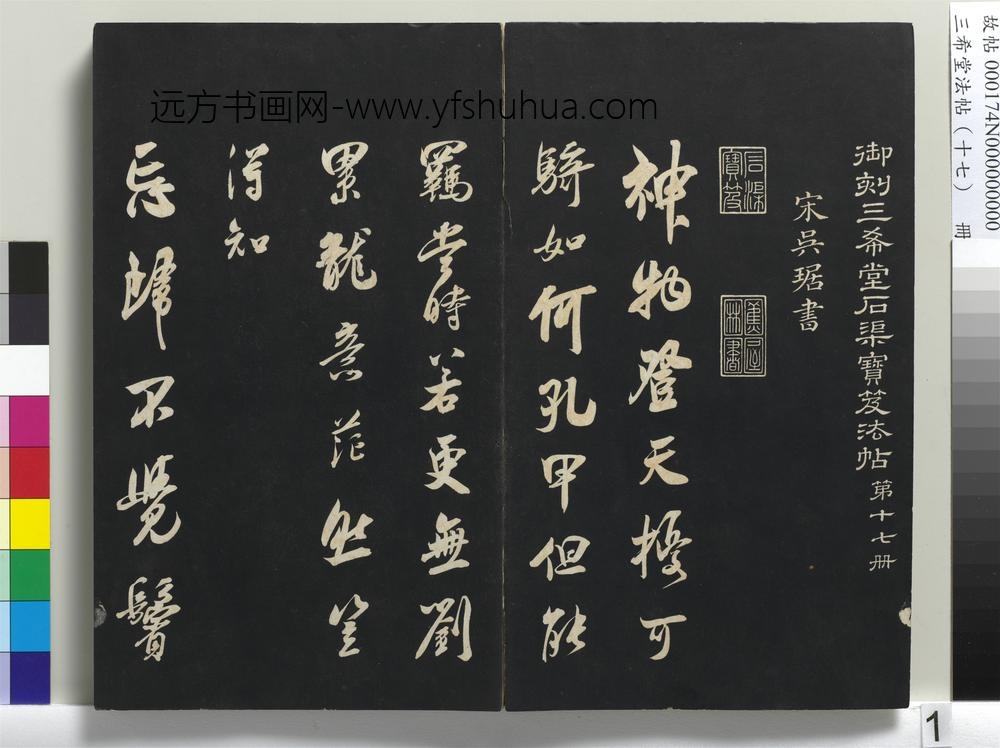 御刻三希堂石渠寶笈法帖 第十七册
宋吳琚書
石渠寶笈
神物登天擾可
騎如何孔甲但能
羈當時若更無劉
累龍意茫然豈
得知
忘歸不覺鬢
远方书画网-www.yfshuhua.com
故帖 000174N000000000
三希堂法帖(十七) 册
1